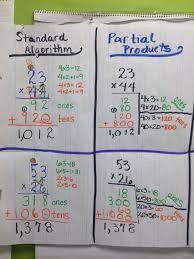 Standard
Algorithm
23
× 44
92 ones
+ 920 tens
1,012
4×3=12
4×2+1=9
4×3=12
4×2+1=9
Partial
Products
23
× 44
12
80
120
+ 800
1,012
4×3=12
4×20=80
40×3=120
40×20=800
53
× 26
318 ones
+1060 tens
1,378
6×3=18
53
× 26
18
300
60
+1000
1,378
6×3=18
6×50=300
20×3=60
20×50=1000